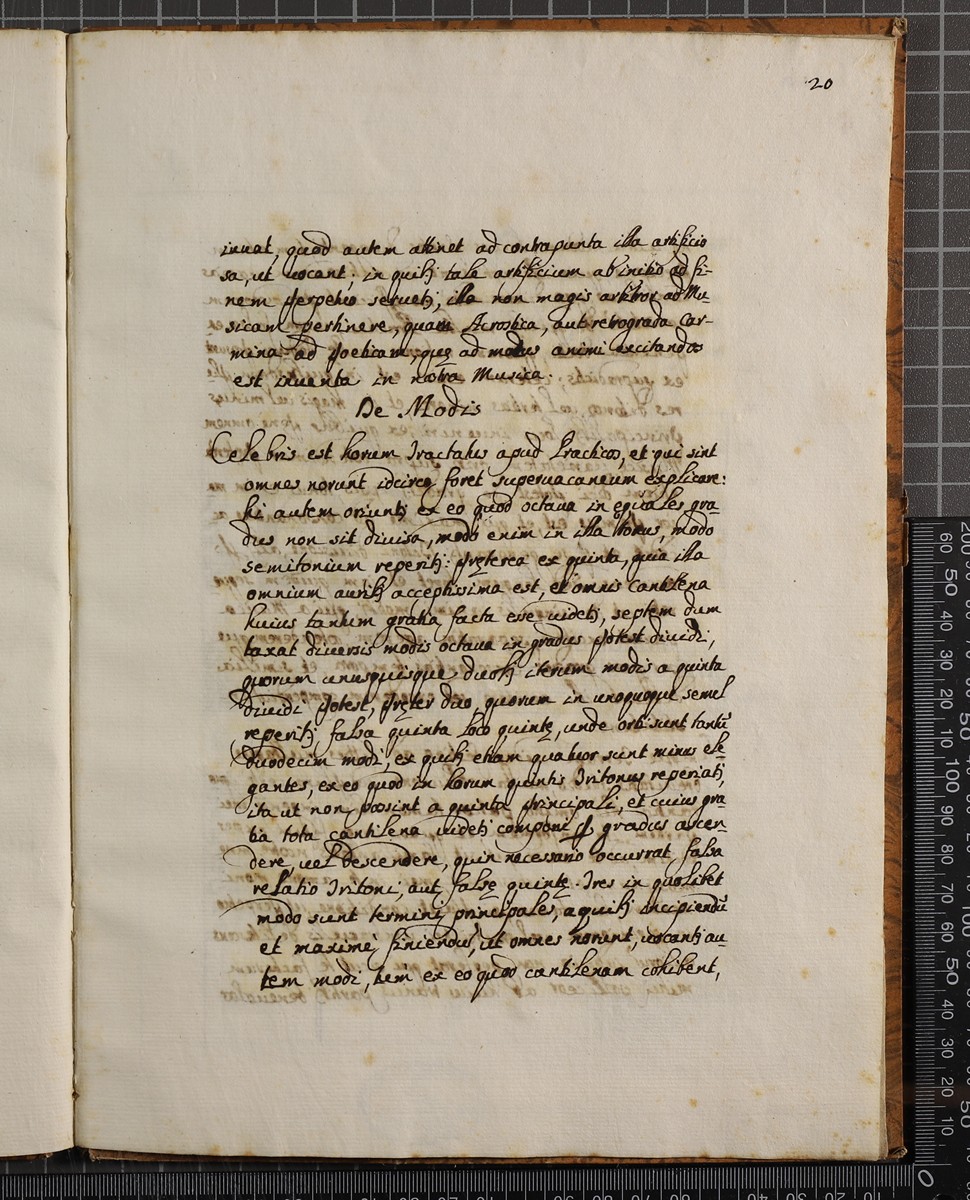 20
iuuat, quod autem attinet ad contrapunta illa artificio
sa, ut uocant; in quibꝫ tale artificium ab initio ad fi-
nem perpetuo seruetꝫ; illa non magis arbitror ad Mu
sicam pertinere, quam Acrostica, aut retrograda Car-
mina ad Poeticam, quę ad motus animi excitandos
est inuenta in nostra Musica.
De Modis
Celebris est horum Tractatus apud Practicos, et qui sint
omnes norunt idcirco foret superuacaneum explicare:
hi autem oriuntꝫ ex eo quod octaua in equales gra-
dus non sit diuisa, modo enim in illa tonus, modo
semitonium reperitꝫ: pręterea ex quinta, quia illa
omnium auribꝫ acceptissima est, et omnis Cantilena
huius tantum gratia facta esse uidetꝫ, septem dum
taxat diuersis modis octaua in gradus potest diuidi,
quorum unusquisque duobꝫ iterum modis a quinta
diuidi potest, pręter duo, quorum in unoquoque semel
reperitꝫ falsa quinta loco quintę, unde orti sunt tantũ
duodecim modi, ex quibꝫ etiam quatuor sunt minus ele-
gantes, ex eo quod in horum quintis Tritonus reperiatꝫ,
ita ut non possint a quinta principali, et cuius gra
tia tota cantilena uidetꝫ componi ꝑ gradus ascen-
dere, uel descendere, quin necessario occurrat falsa
relatio Tritoni, aut falsę quintę. Tres in quolibet
modo sunt termini principales, a quibꝫ incipiendũ
et maximè finiendũ, ut omnes norunt, uocantꝫ au-
tem modi, tum ex eo quod cantilenam cohibent,